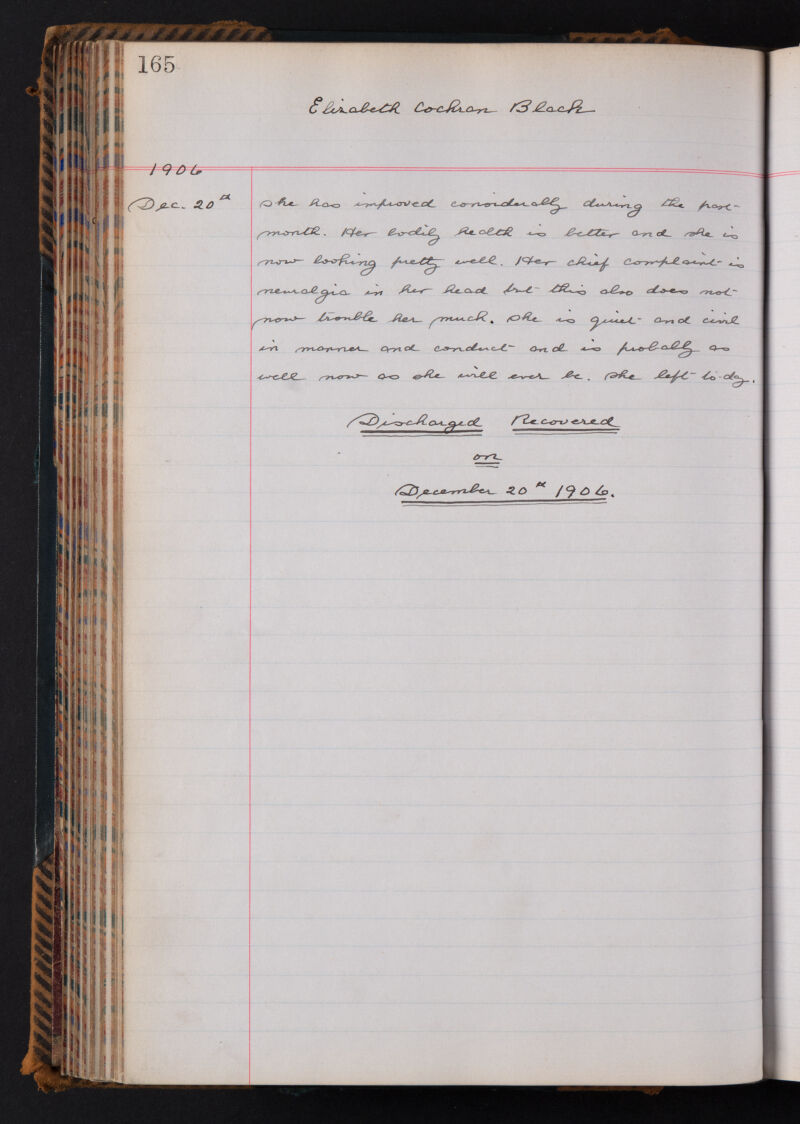 165
Elizabeth Cochran Black
1906
Dec. 20th She has improved considerably during the past
month. Her bodily health is better and she is
now looking pretty well. Her chief complaint is
neuralgia in her head but this also does not
now trouble her much. She is quiet and civil
in manner and conduct and is probably as
well now as she will ever be. She left to-day.
Discharged Recovered
on
December 20th 1906.